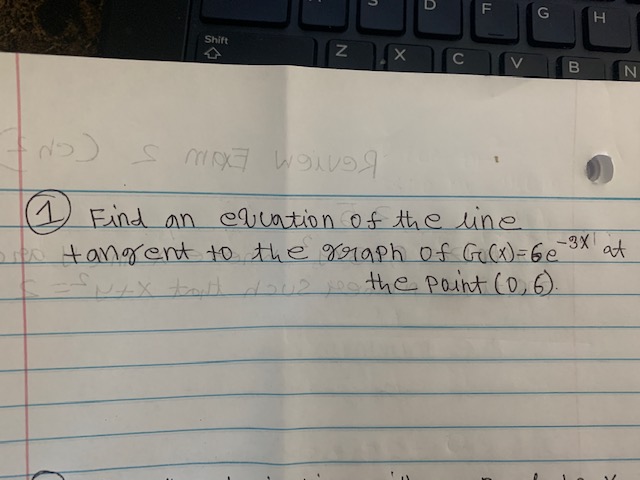 D F G H
Shift
Z X C V B N
Review Exam 2 (Ch 2)
① Find an equation of the line
tangent to the graph of G(x)=6e^-3x at
the point (0,6).